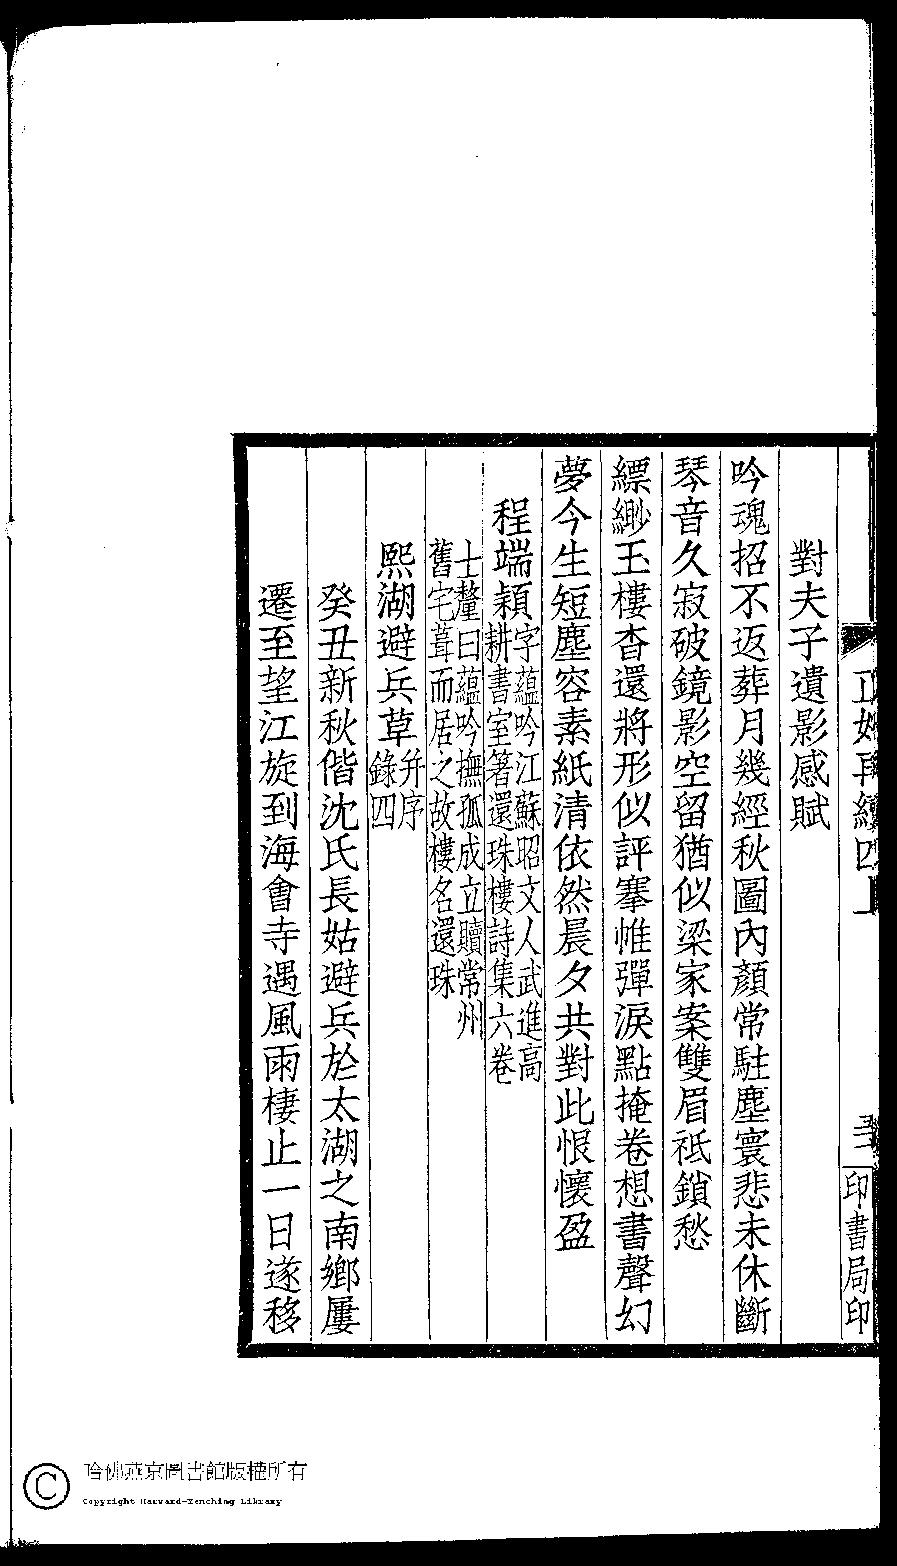 正始再續四上
五
印書局印
對夫子遺影感賦
吟魂招不返葬月幾經秋圖內顏常駐塵寰悲未休斷
琴音久寂破鏡影空留猶似梁家案雙眉祗鎖愁
縹緲玉樓杳還將形似評搴帷彈淚點掩卷想書聲幻
夢今生短塵容素紙清依然晨夕共對此恨懷盈
程端穎字蘊吟江蘇昭文人武進高
耕書室箸還珠樓詩集六卷
士釐曰蘊吟撫孤成立贖常州
舊宅葺而居之故樓名還珠
熙湖避兵草并序
錄四
癸丑新秋偕沈氏長姑避兵於太湖之南鄉屢
遷至望江旋到海會寺遇風雨棲止一日遂移
哈佛燕京圖書館版權所有
Copyright Harvard-Yenching Library